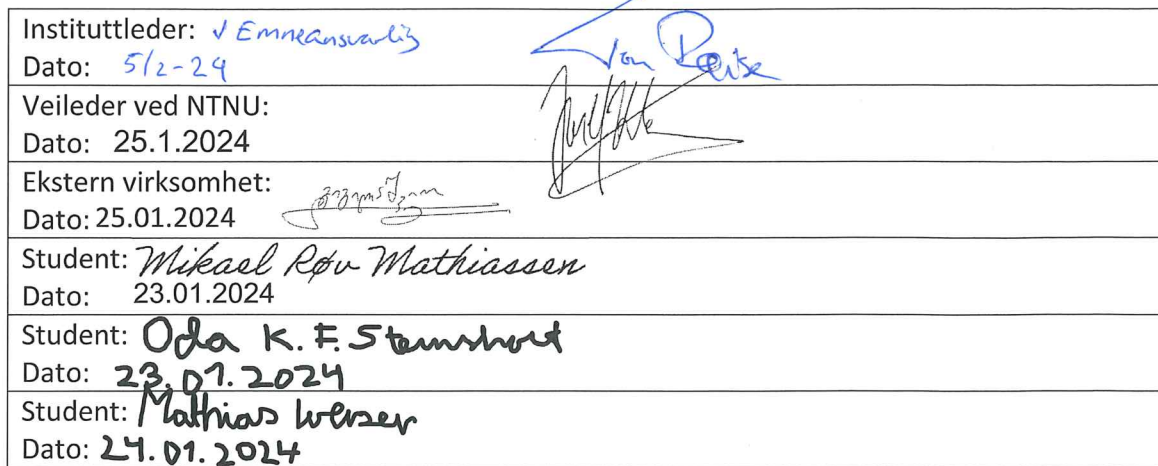 Instituttleder: v Emneansvarlig
Dato: 5/2-24
Veileder ved NTNU:
Dato: 25.1.2024
Ekstern virksomhet:
Dato: 25.01.2024
Student: Mikael Røv Mathiassen
Dato: 23.01.2024
Student: Oda K. F.
Dato: 23.01.2024
Student: Mathias
Dato: 24.01.2024